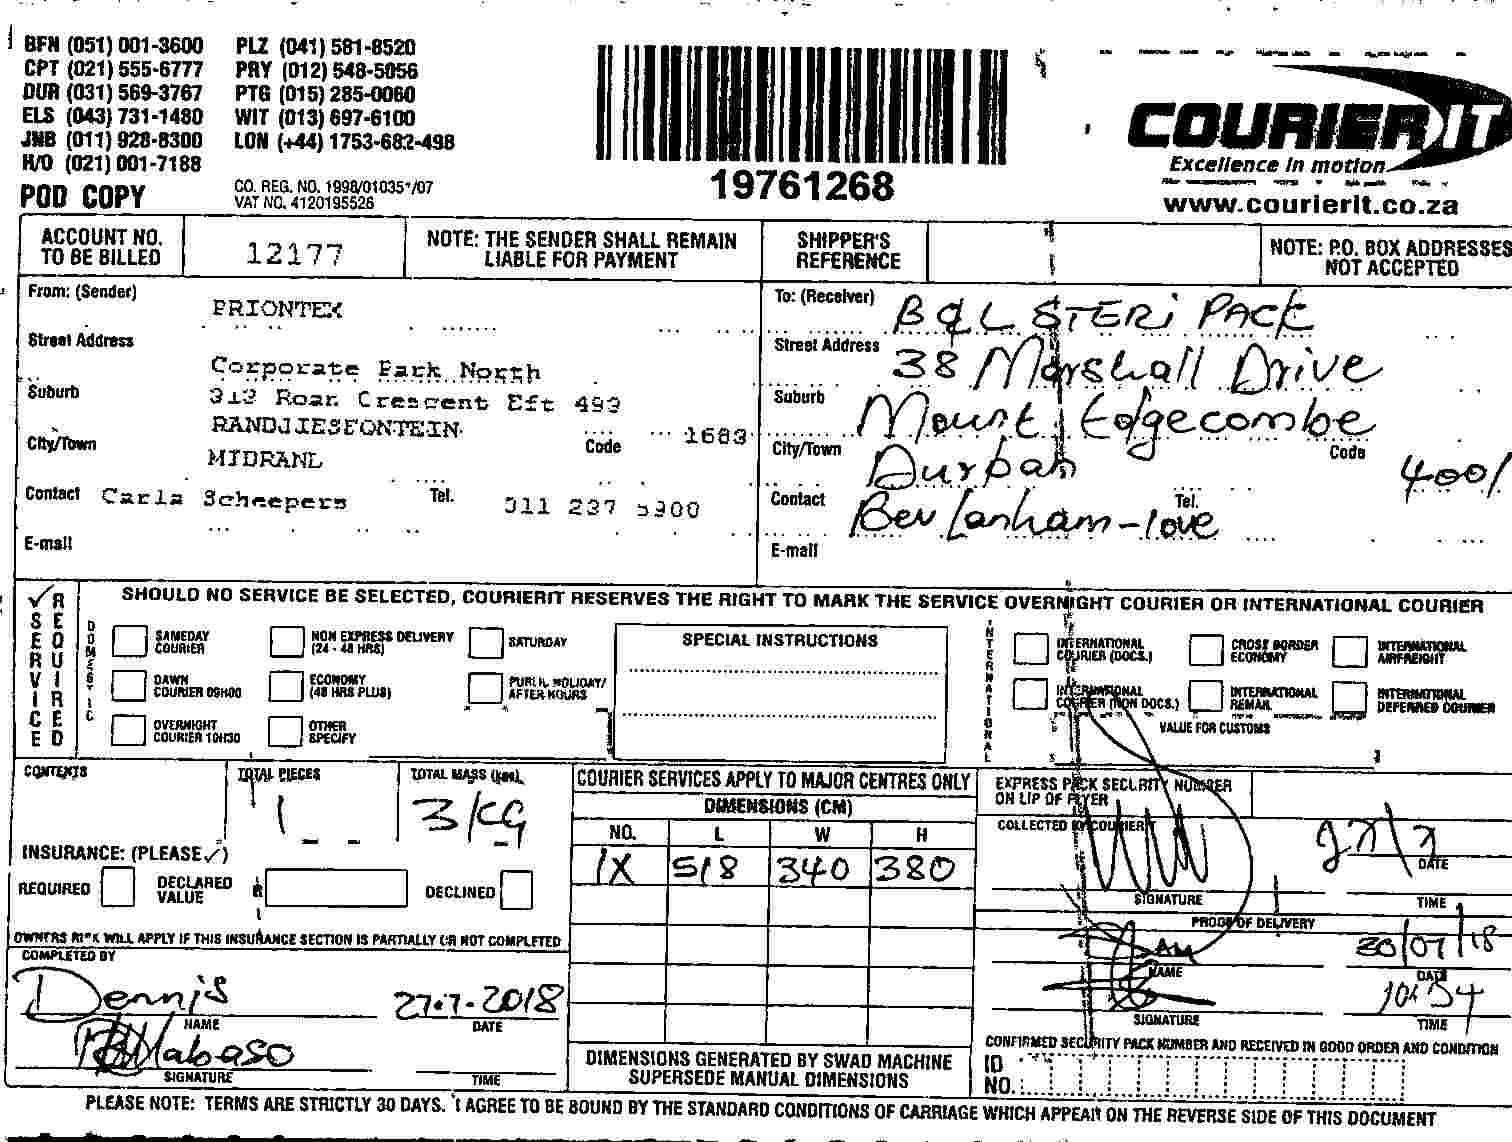 BFN (051) 001-3600 PLZ (041) 581-8520
CPT (021) 555-6777 PRY (012) 548-5056
DUR (031) 569-3767 PTG (015) 285-0060
ELS (043) 731-1480 WIT (013) 697-6100
JNB (011) 928-8300 LON (+44) 1753-682-498
H/O (021) 001-7188
POD COPY
CO. REG. NO. 1998/01035*/07
VAT NO. 4120195526
19761268
COURIERIT
Excellence in motion
www.courierit.co.za
ACCOUNT NO. TO BE BILLED 12177
NOTE: THE SENDER SHALL REMAIN LIABLE FOR PAYMENT
SHIPPER'S REFERENCE
NOTE: P.O. BOX ADDRESSES NOT ACCEPTED
From: (Sender) PRIONTEX
Street Address Corporate Park North
Suburb 313 Roan Crescent Eft 493
RANDJIESFONTEIN
City/Town MIDRANL Code 1683
Contact Carla Scheepers Tel. 011 237 5900
E-mail
To: (Receiver) B&L STERi PACK
Street Address 38 Marshall Drive
Suburb Mount Edgecombe
City/Town Durban Code 4001
Contact Bev Lanham-love Tel.
E-mail
✓ SERVICE REQUIRED
SHOULD NO SERVICE BE SELECTED, COURIERIT RESERVES THE RIGHT TO MARK THE SERVICE OVERNIGHT COURIER OR INTERNATIONAL COURIER
DOMESTIC
SAMEDAY COURIER
NON EXPRESS DELIVERY (24 - 48 HRS)
SATURDAY
DAWN COURIER 09H00
ECONOMY (48 HRS PLUS)
PUBLIC HOLIDAY/ AFTER HOURS
OVERNIGHT COURIER 10H30
OTHER SPECIFY
SPECIAL INSTRUCTIONS
INTERNATIONAL
INTERNATIONAL COURIER (DOCS.)
CROSS BORDER ECONOMY
INTERNATIONAL AIRFREIGHT
INTERNATIONAL COURIER (NON DOCS.)
INTERNATIONAL REMAIL
INTERNATIONAL DEFERRED COURIER
VALUE FOR CUSTOMS
CONTENTS
TOTAL PIECES 1
TOTAL MASS (kg) 3KG
INSURANCE: (PLEASE ✓)
REQUIRED
DECLARED VALUE R
DECLINED
OWNERS RISK WILL APPLY IF THIS INSURANCE SECTION IS PARTIALLY OR NOT COMPLETED
COMPLETED BY
Dennis 27.7.2018
NAME DATE
Mabaso
SIGNATURE TIME
COURIER SERVICES APPLY TO MAJOR CENTRES ONLY
DIMENSIONS (CM)
NO. L W H
1X 518 340 380
DIMENSIONS GENERATED BY SWAD MACHINE SUPERSEDE MANUAL DIMENSIONS
EXPRESS PACK SECURITY NUMBER ON LIP OF FLYER
COLLECTED BY COURIERIT
DATE
SIGNATURE TIME
PROOF OF DELIVERY
30/07/18
NAME DATE
10:54
SIGNATURE TIME
CONFIRMED SECURITY PACK NUMBER AND RECEIVED IN GOOD ORDER AND CONDITION
ID NO.:
PLEASE NOTE: TERMS ARE STRICTLY 30 DAYS. I AGREE TO BE BOUND BY THE STANDARD CONDITIONS OF CARRIAGE WHICH APPEAR ON THE REVERSE SIDE OF THIS DOCUMENT